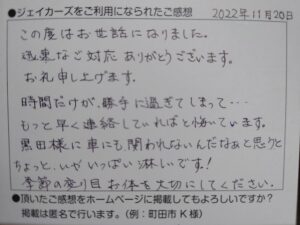 ●ジェイカーズをご利用になられたご感想
2022年11月20日
この度はお世話になりました。
迅速なご対応ありがとうございます。
お礼申し上げます。
時間だけが、勝手に過ぎてしまって…
もっと早く連絡していればと悔いています。
黒田様に車にも関われないんだなぁと思うと
ちょっと、いやいっぱい淋しいです!
季節の変り目お体を大切にしてください。
●頂いたご感想をホームページに掲載してもよろしいですか?
掲載は匿名で行います。(例:町田市K様)